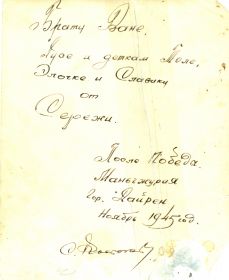 Брату Ване,
Дусе и деткам Поле,
Эллочке и Славику
от
Сережи.
После Победы.
Маньчжурия
гор. Дайрен
Ноябрь 1945 год.